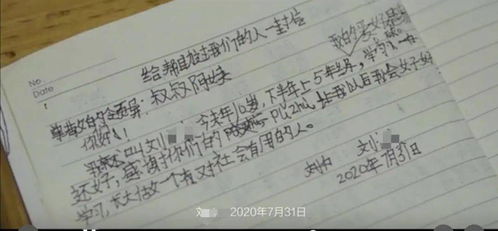 No.
Date
给帮助过我们的人一封信
尊敬的 叔叔阿姨
你好!
我的爱好是
我 刘 今年10岁,下半年上5年级,学习
还好,感谢你们的 PiZhu, 我以后 会好好
学习,长大做一个有 对社会有用的人。
刘
2020年7月31日
刘 2020年7月31日